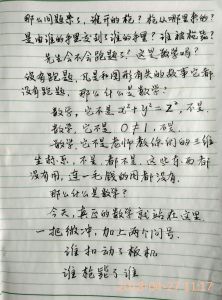 那么问题来了,谁开的枪?枪从哪里来的?
是由谁的手里交到了谁的手里?谁被枪毙?
先生会不会跑题了?这是数学吗?
没有跑题,凡是和图形有关的数学它都
没有跑题,那么什么是数学?
数学,它不是x²+y²=z²,不是.
数学,它不是0≠1,不是.
数学,它不是老师教你们的三维
坐标系,不是,都不是,这些东西都
没有用,连一毛钱的用都没有.
那么什么是数学?
今天,真正的数学就站在这里
一把微冲,加上两个问号.
谁扣动了板机
谁枪毙了谁
11:17